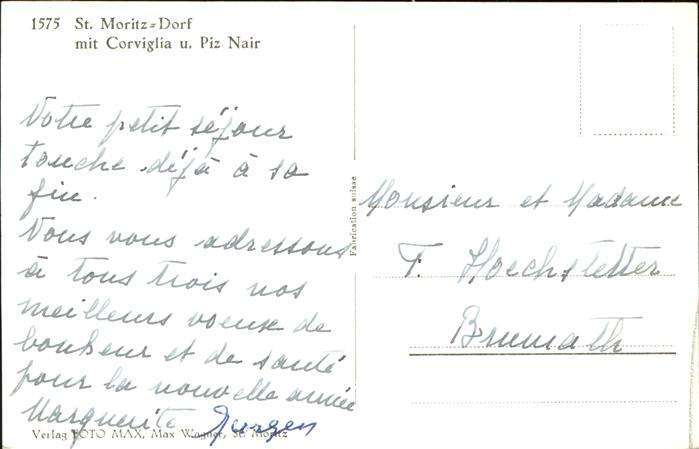 1575 St. Moritz=Dorf
mit Corviglia u. Piz Nair
Votre petit séjour
touche déjà à sa
fin.
Vous vous adressons
à tous trois nos
meilleurs voeux de
bonheur et de santé
pour la nouvelle année
Marguerite Jurgen
Fabrication suisse
Monsieur et Madame
F. Hoechstetter
Brumath
Verlag FOTO MAX, Max Wagner, St. Moritz